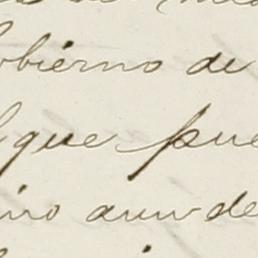 obierno de
que pue
ino aun de